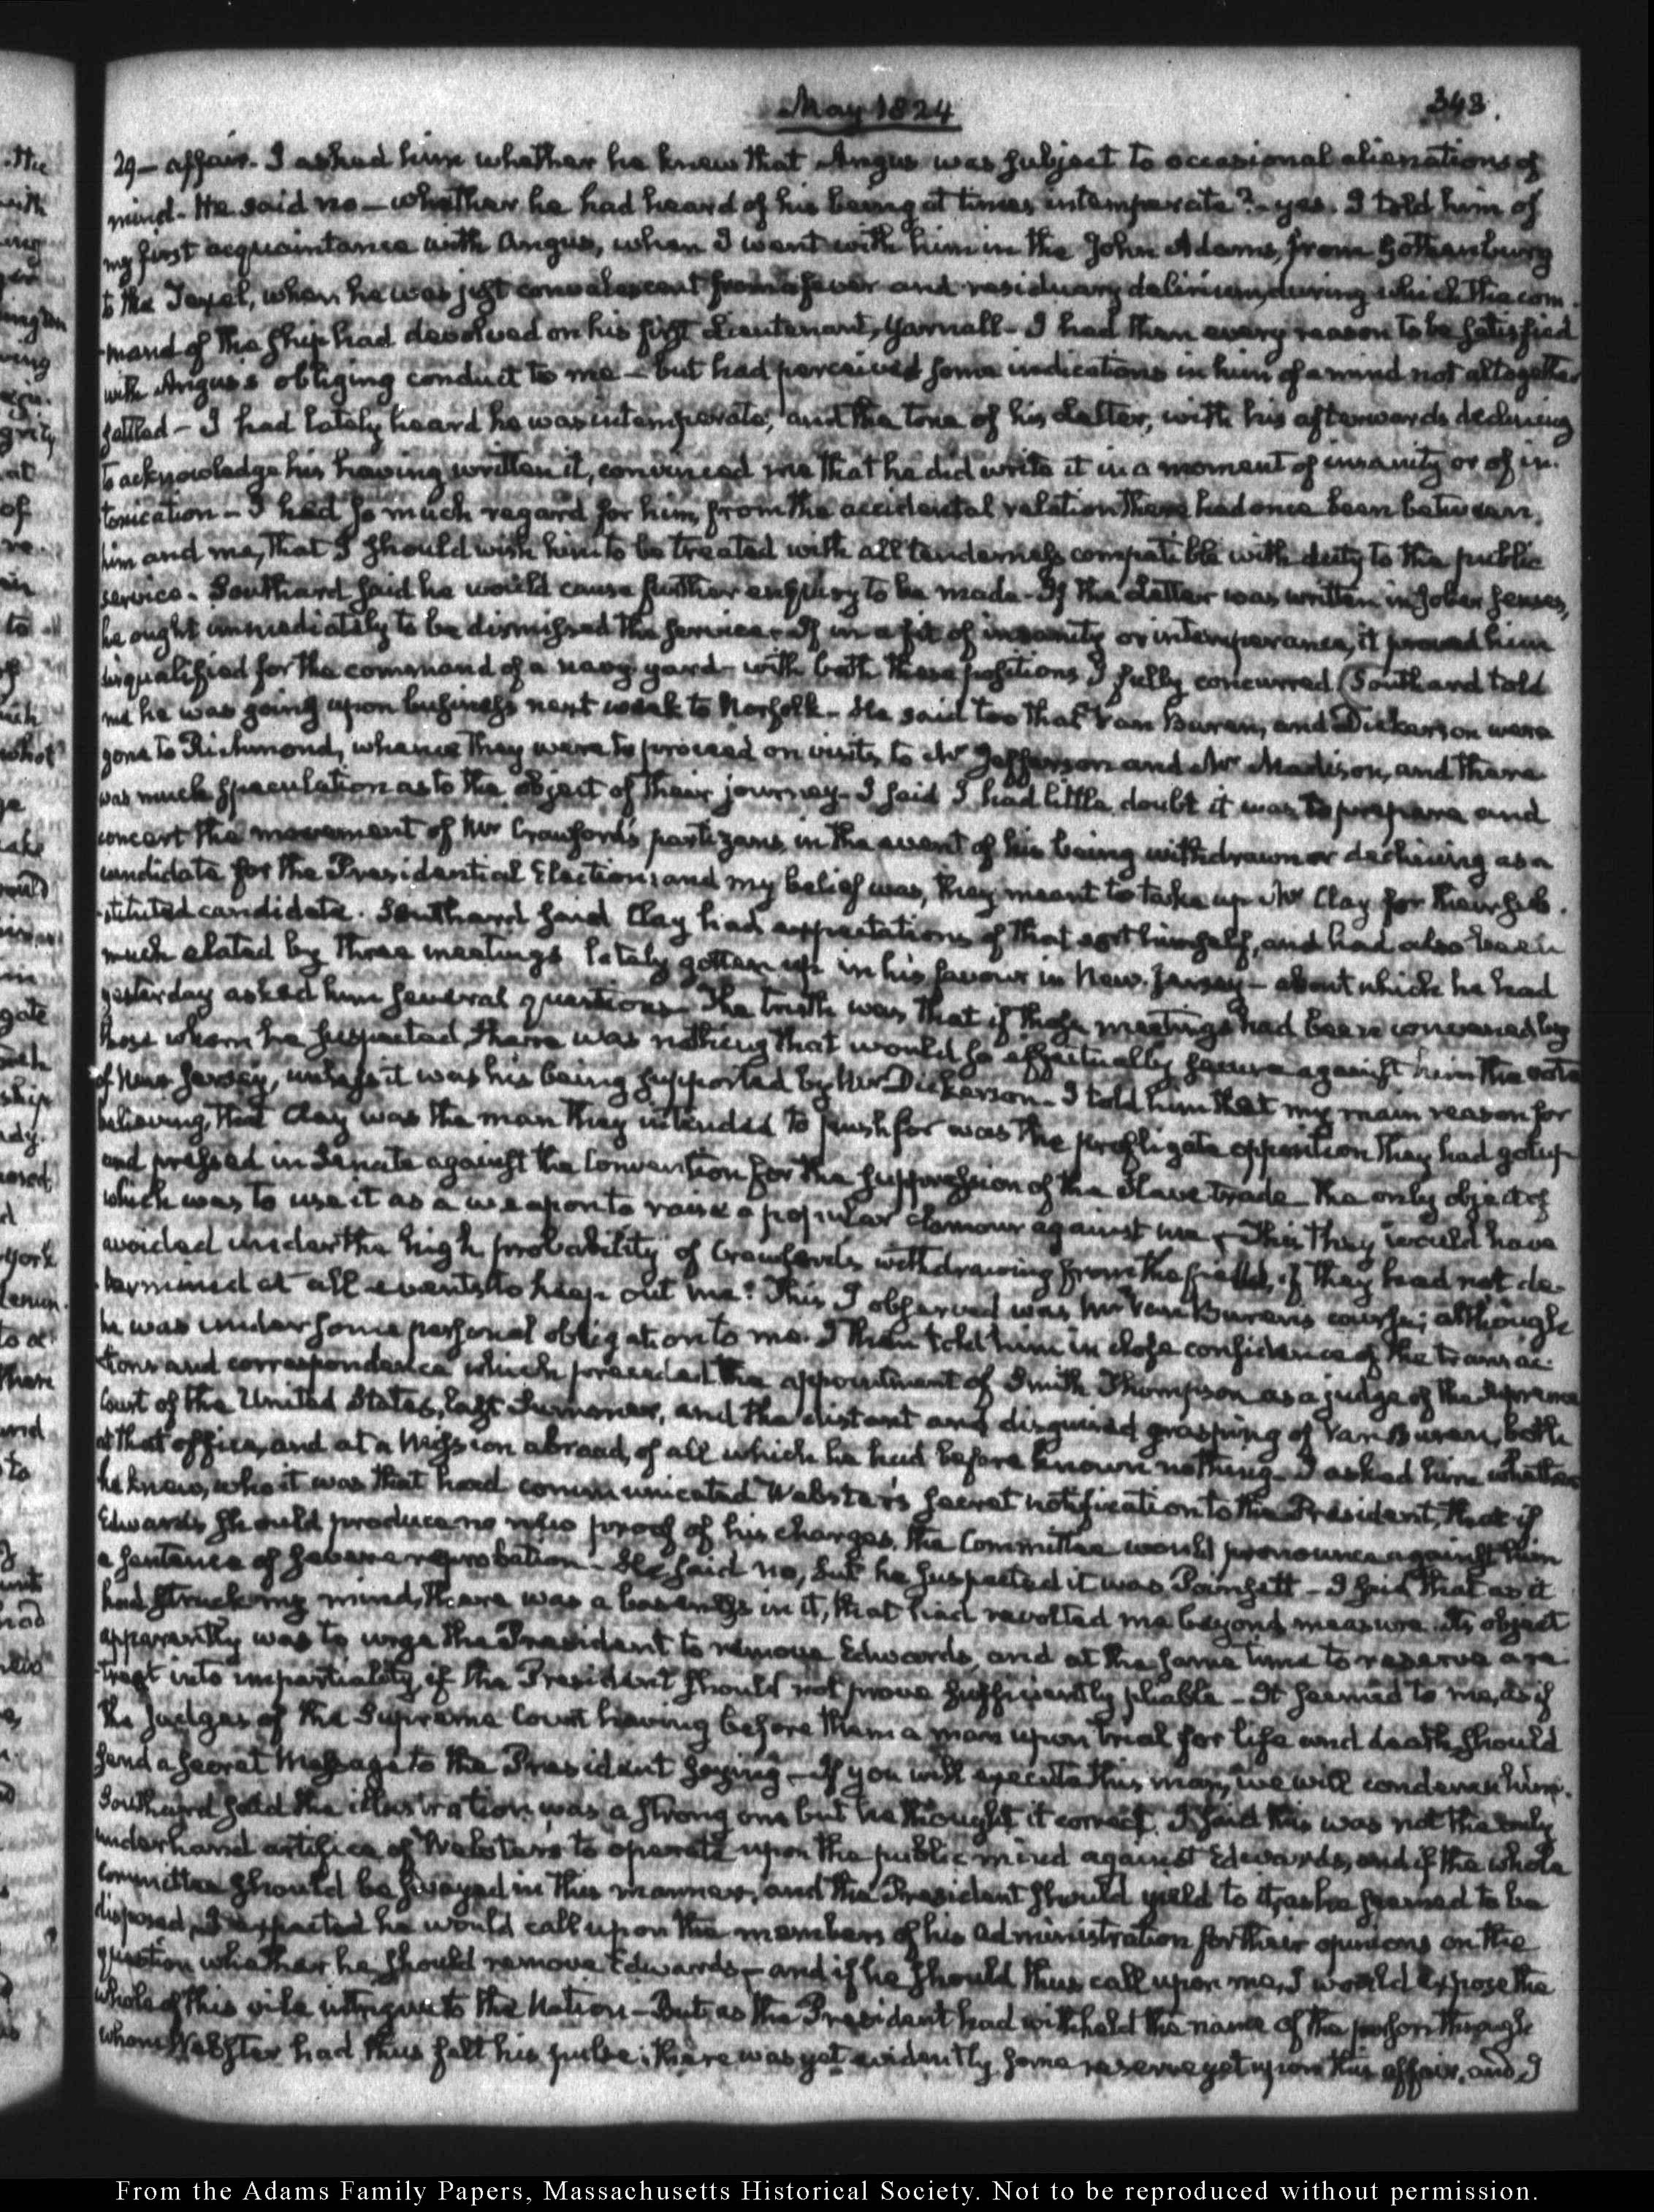 May 1824
343.
29— affair. I asked him whether he knew that Angus was subject to occasional alienations of
mind. He said no—whether he had heard of his being at times intemperate?—yes. I told him of
my first acquaintance with Angus, when I went with him in the John Adams, from Gothenburg
to the Texel, when he was just convalescent from a fever and residuary delirium, during which the com-
mand of the ship had devolved on his first Lieutenant, Yarnall—I had then every reason to be satisfied
with Angus's obliging conduct to me—but had perceived some indications in him of a mind not altogether
settled—I had lately heard he was intemperate, and the tone of his Letter, with his afterwards declining
to acknowledge his having written it, convinced me that he did write it in a moment of insanity or of in-
toxication—I had so much regard for him, from the accidental relation there had once been between
him and me, that I should wish him to be treated with all tenderness compatible with duty to the public
service. Southard said he would cause further enquiry to be made—If the Letter was written in sober senses,
he ought immediately to be dismissed the service—If in a fit of insanity or intemperance, it proved him
disqualified for the command of a navy yard—with both these positions I fully concurred (Southard told
me he was going upon business next week to Norfolk—He said too that Van Buren, and Dickerson were
gone to Richmond, whence they were to proceed on visits to Mr Jefferson and Mr Madison, and there
was much speculation as to the object of their journey—I said I had little doubt it was to prepare and
concert the movement of Mr Crawford's partizans, in the event of his being withdrawn or declining as a
candidate for the Presidential Election; and my belief was, they meant to take up Mr Clay for their sub-
stituted candidate. Southard said Clay had expectations of that sort himself, and had also been
much elated by three meetings lately gotten up in his favour in New-Jersey—about which he had
yesterday asked him several questions—The truth was, that if those meetings had been convened by
those whom he suspected, there was nothing that would so effectually secure against him the vote
of New Jersey, unless it was his being supported by Mr Dickerson—I told him that my main reason for
believing, that Clay was the man they intended to push for was the profligate opposition they had got up
and pressed in Senate against the Convention for the suppression of the Slave trade—The only object of
which was to use it as a weapon to raise a popular clamour against me—This they would have
avoided under the high probability of Crawford's withdrawing from the field, if they had not de-
termined at all events to keep out me. This I observed was Mr Van Buren's course; although
he was under some personal obligation to me. I then told him in close confidence of the transac-
tions and correspondence which preceded the appointment of Smith Thompson as a judge of the Supreme
Court of the United States, last Summer, and the distant and disguised grasping of Van Buren, both
at that office, and at a Mission abroad, of all which he had before known nothing—I asked him whether
he knew, who it was that had communicated Webster's secret notification to the President, that if
Edwards should produce no new proof of his charges, the Committee would pronounce against him
a sentence of severe reprobation—He said no, but he suspected it was Poinsett—I said that as it
had struck my mind, there was a baseness in it, that had revolted me beyond measure. Its object
apparently was to urge the President to remove Edwards, and at the same time to reserve a re-
treat into impartiality, if the President should not prove sufficiently pliable—It seemed to me, as if
the Judges of the Supreme Court having before them a man upon trial for life and death should
send a secret Message to the President saying—If you will execute this man, we will condemn him.
Southard said the illustration was a strong one but he thought it correct. I said this was not the only
underhand artifice of Webster's to operate upon the public mind against Edwards, and if the whole
Committee should be swayed in this manner, and the President should yield to it, as he seemed to be
disposed, I expected he would call upon the members of his administration for their opinions on the
question whether he should remove Edwards—and if he should thus call upon me, I would expose the
whole of this vile intrigue to the Nation—But as the President had withheld the name of the person through
whom Webster had thus felt his pulse; there was yet evidently some reserve yet upon this affair, and I
From the Adams Family Papers, Massachusetts Historical Society. Not to be reproduced without permission.